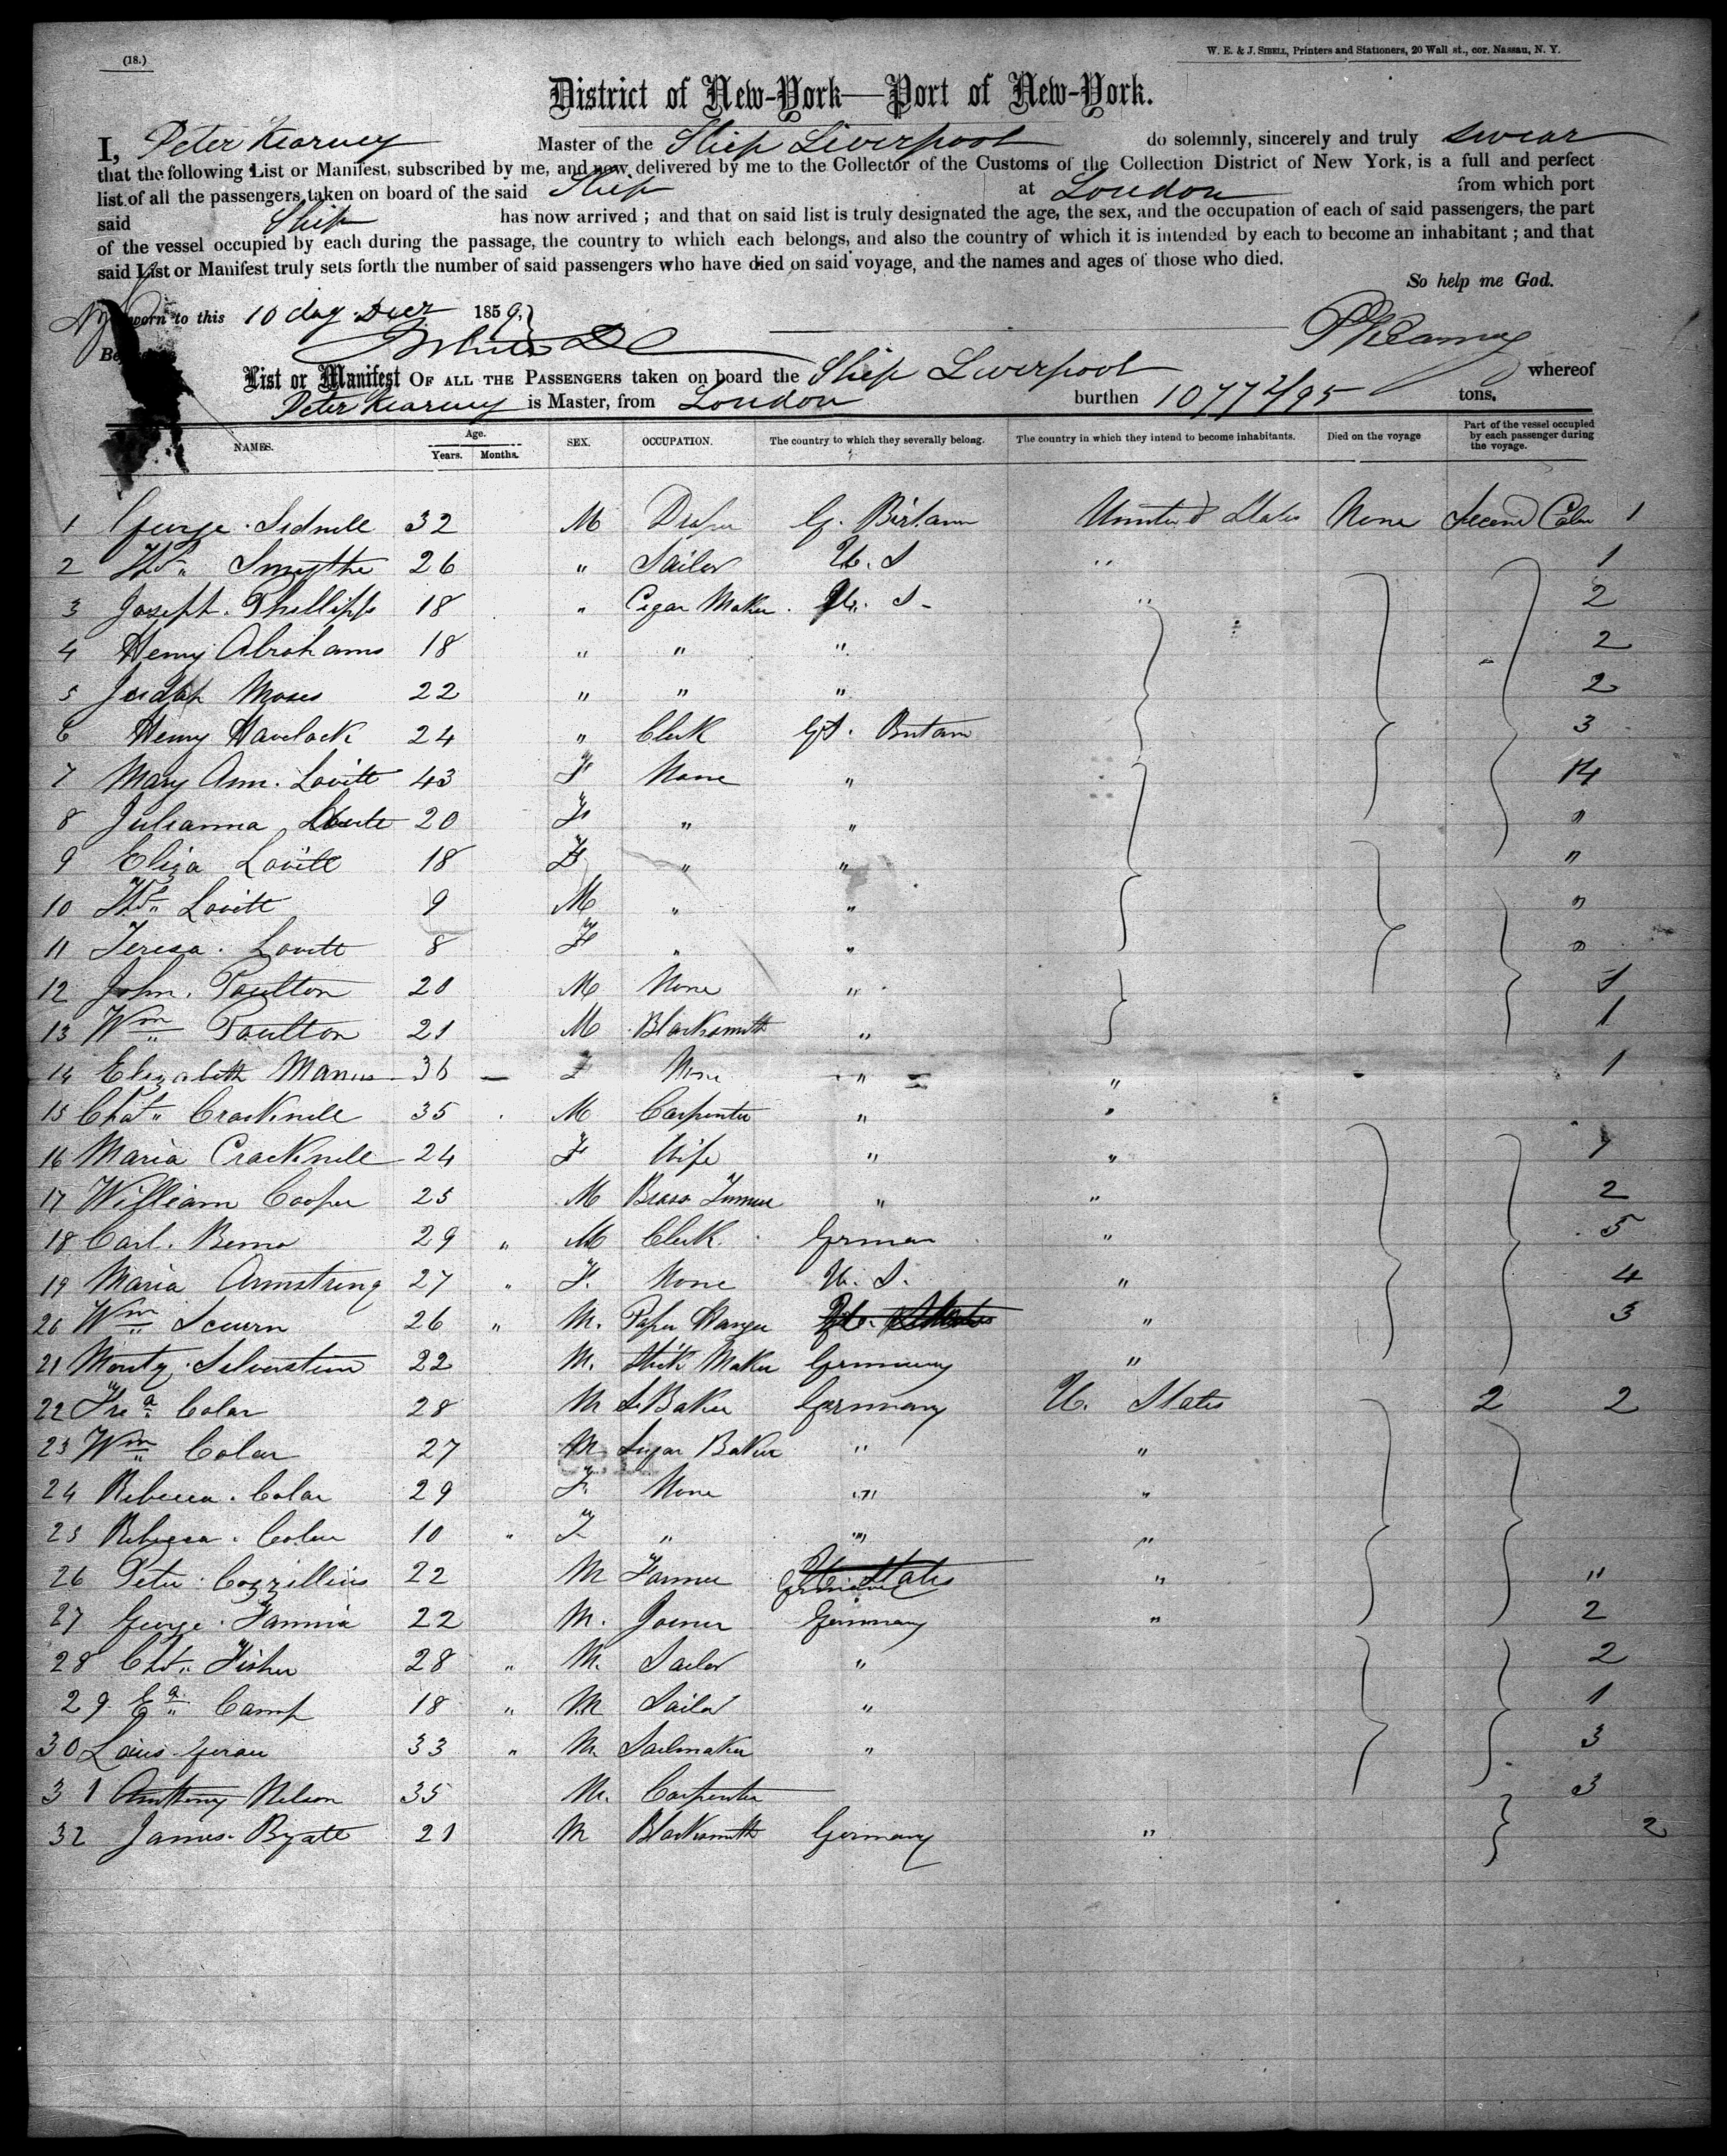 (18.)
W. E. & J. SIBELL, Printers and Stationers, 20 Wall st., cor. Nassau, N. Y.
District of New-York—Port of New-York.
I, Peter Kearney Master of the Ship Liverpool do solemnly, sincerely and truly swear
that the following List or Manifest, subscribed by me, and now delivered by me to the Collector of the Customs of the Collection District of New York, is a full and perfect
list of all the passengers taken on board of the said Ship at London from which port
said Ship has now arrived; and that on said list is truly designated the age, the sex, and the occupation of each of said passengers, the part
of the vessel occupied by each during the passage, the country to which each belongs, and also the country of which it is intended by each to become an inhabitant; and that
said List or Manifest truly sets forth the number of said passengers who have died on said voyage, and the names and ages of those who died.
So help me God.
Sworn to this 10 day Decr 1859,
PKearney
List or Manifest OF ALL THE PASSENGERS taken on board the Ship Liverpool whereof
Peter Kearney is Master, from London burthen 1077 2/95 tons.
NAMES. Age. Years. Months. SEX. OCCUPATION. The country to which they severally belong. The country in which they intend to become inhabitants. Died on the voyage Part of the vessel occupied by each passenger during the voyage.
1 George Sidnell 32 M Draper G. Birtann Unnited States None Second Cabn 1
2 Thos " Smythe 26 " Sailor U. S " 1
3 Joseph Phillipps 18 " Cegar Maker U. S " 2
4 Henry Abrahams 18 " " " 2
5 Judah Moses 22 " " " 2
6 Henry Havelock 24 " Clerk Gt. Britain 3
7 Mary Ann Lovitt 43 F None " 14
8 Julianna 20 F " " "
9 Eliza Lovitt 18 F " " "
10 Thos " Lovitt 9 M " " "
11 Teresa Lovitt 8 F " " "
12 John Poulton 20 M None " 1
13 Wm " Poulton 21 M Blacksmith " 1
14 Elizabeth 36 F None " " 1
15 Chas " Cracknell 35 M Carpenter " "
16 Maria Cracknell 24 F Wife " "
17 William Cooper 25 M Brass Turner " " 2
18 Carl 29 " M Clerk German " 5
19 Maria Armstrong 27 " F. None U. S. " 4
20 Wm " Scurrn 26 " M. Paper Hanger " 3
21 Silverstein 22 M. Stick Maker Germany "
22 Fre a Colar 28 M S. Baker Germany U. States 2 2
23 Wm " Colar 27 M Sugar Baker " "
24 Rebecca Colar 29 F. None " "
25 Rebecca Colar 10 " F " " "
26 Peter 22 M Farmer U. States Germany " "
27 George 22 M. Joiner Germany " 2
28 Chs " Fisher 28 " M. Sailor " 2
29 Camp 18 " M Sailor " 1
30 Louis 33 " M. Sailmaker " 3
31 Anthony Nelson 35 M. Carpenter 3
32 James Byatt 21 M Blacksmith Germany " 2